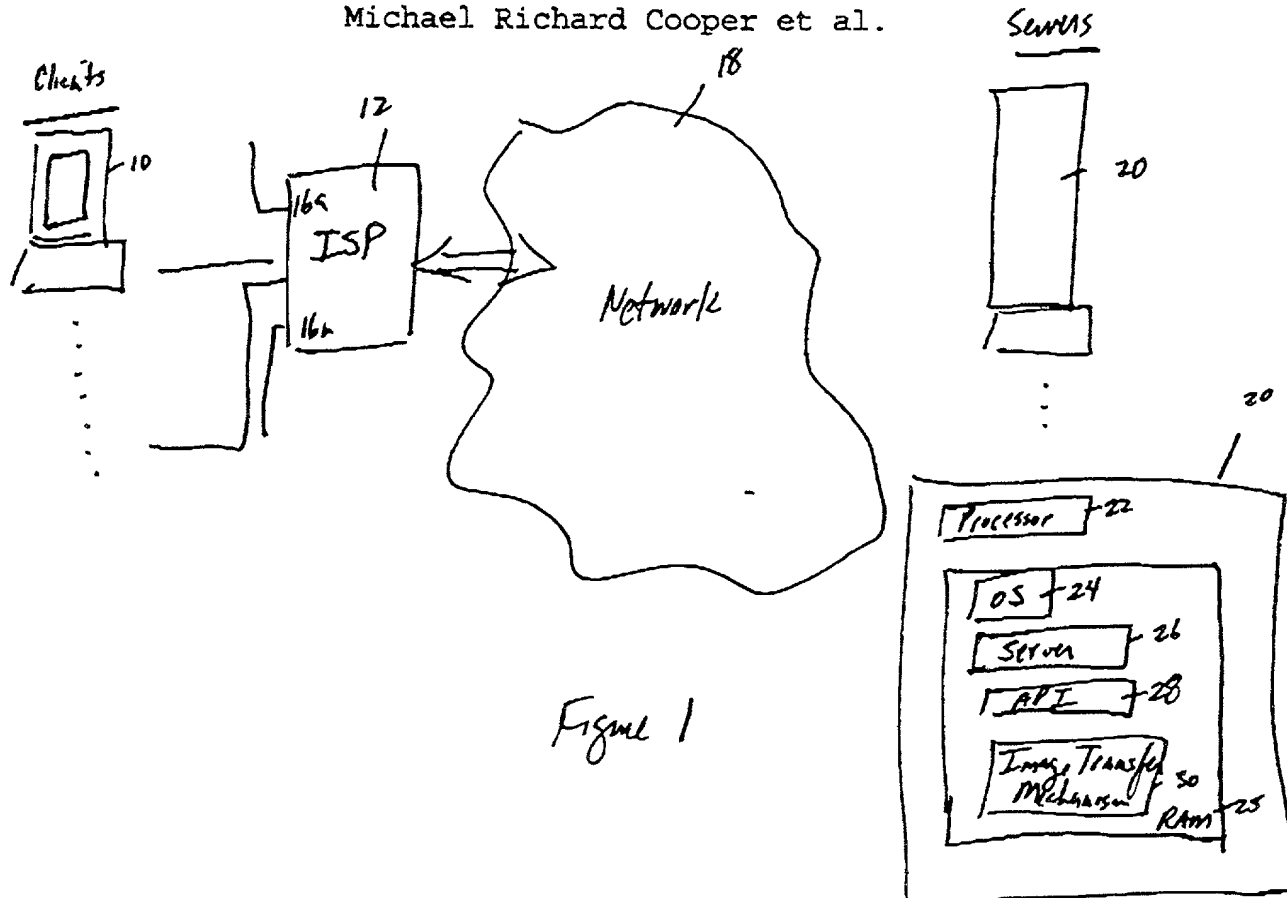 Michael Richard Cooper et al.
Clients
Servers
10
12
18
20
16a
ISP
16n
Network
20
Processor
22
OS
24
Server
26
API
28
Image Transfer
Mechanism
30
RAM
25
Figure 1